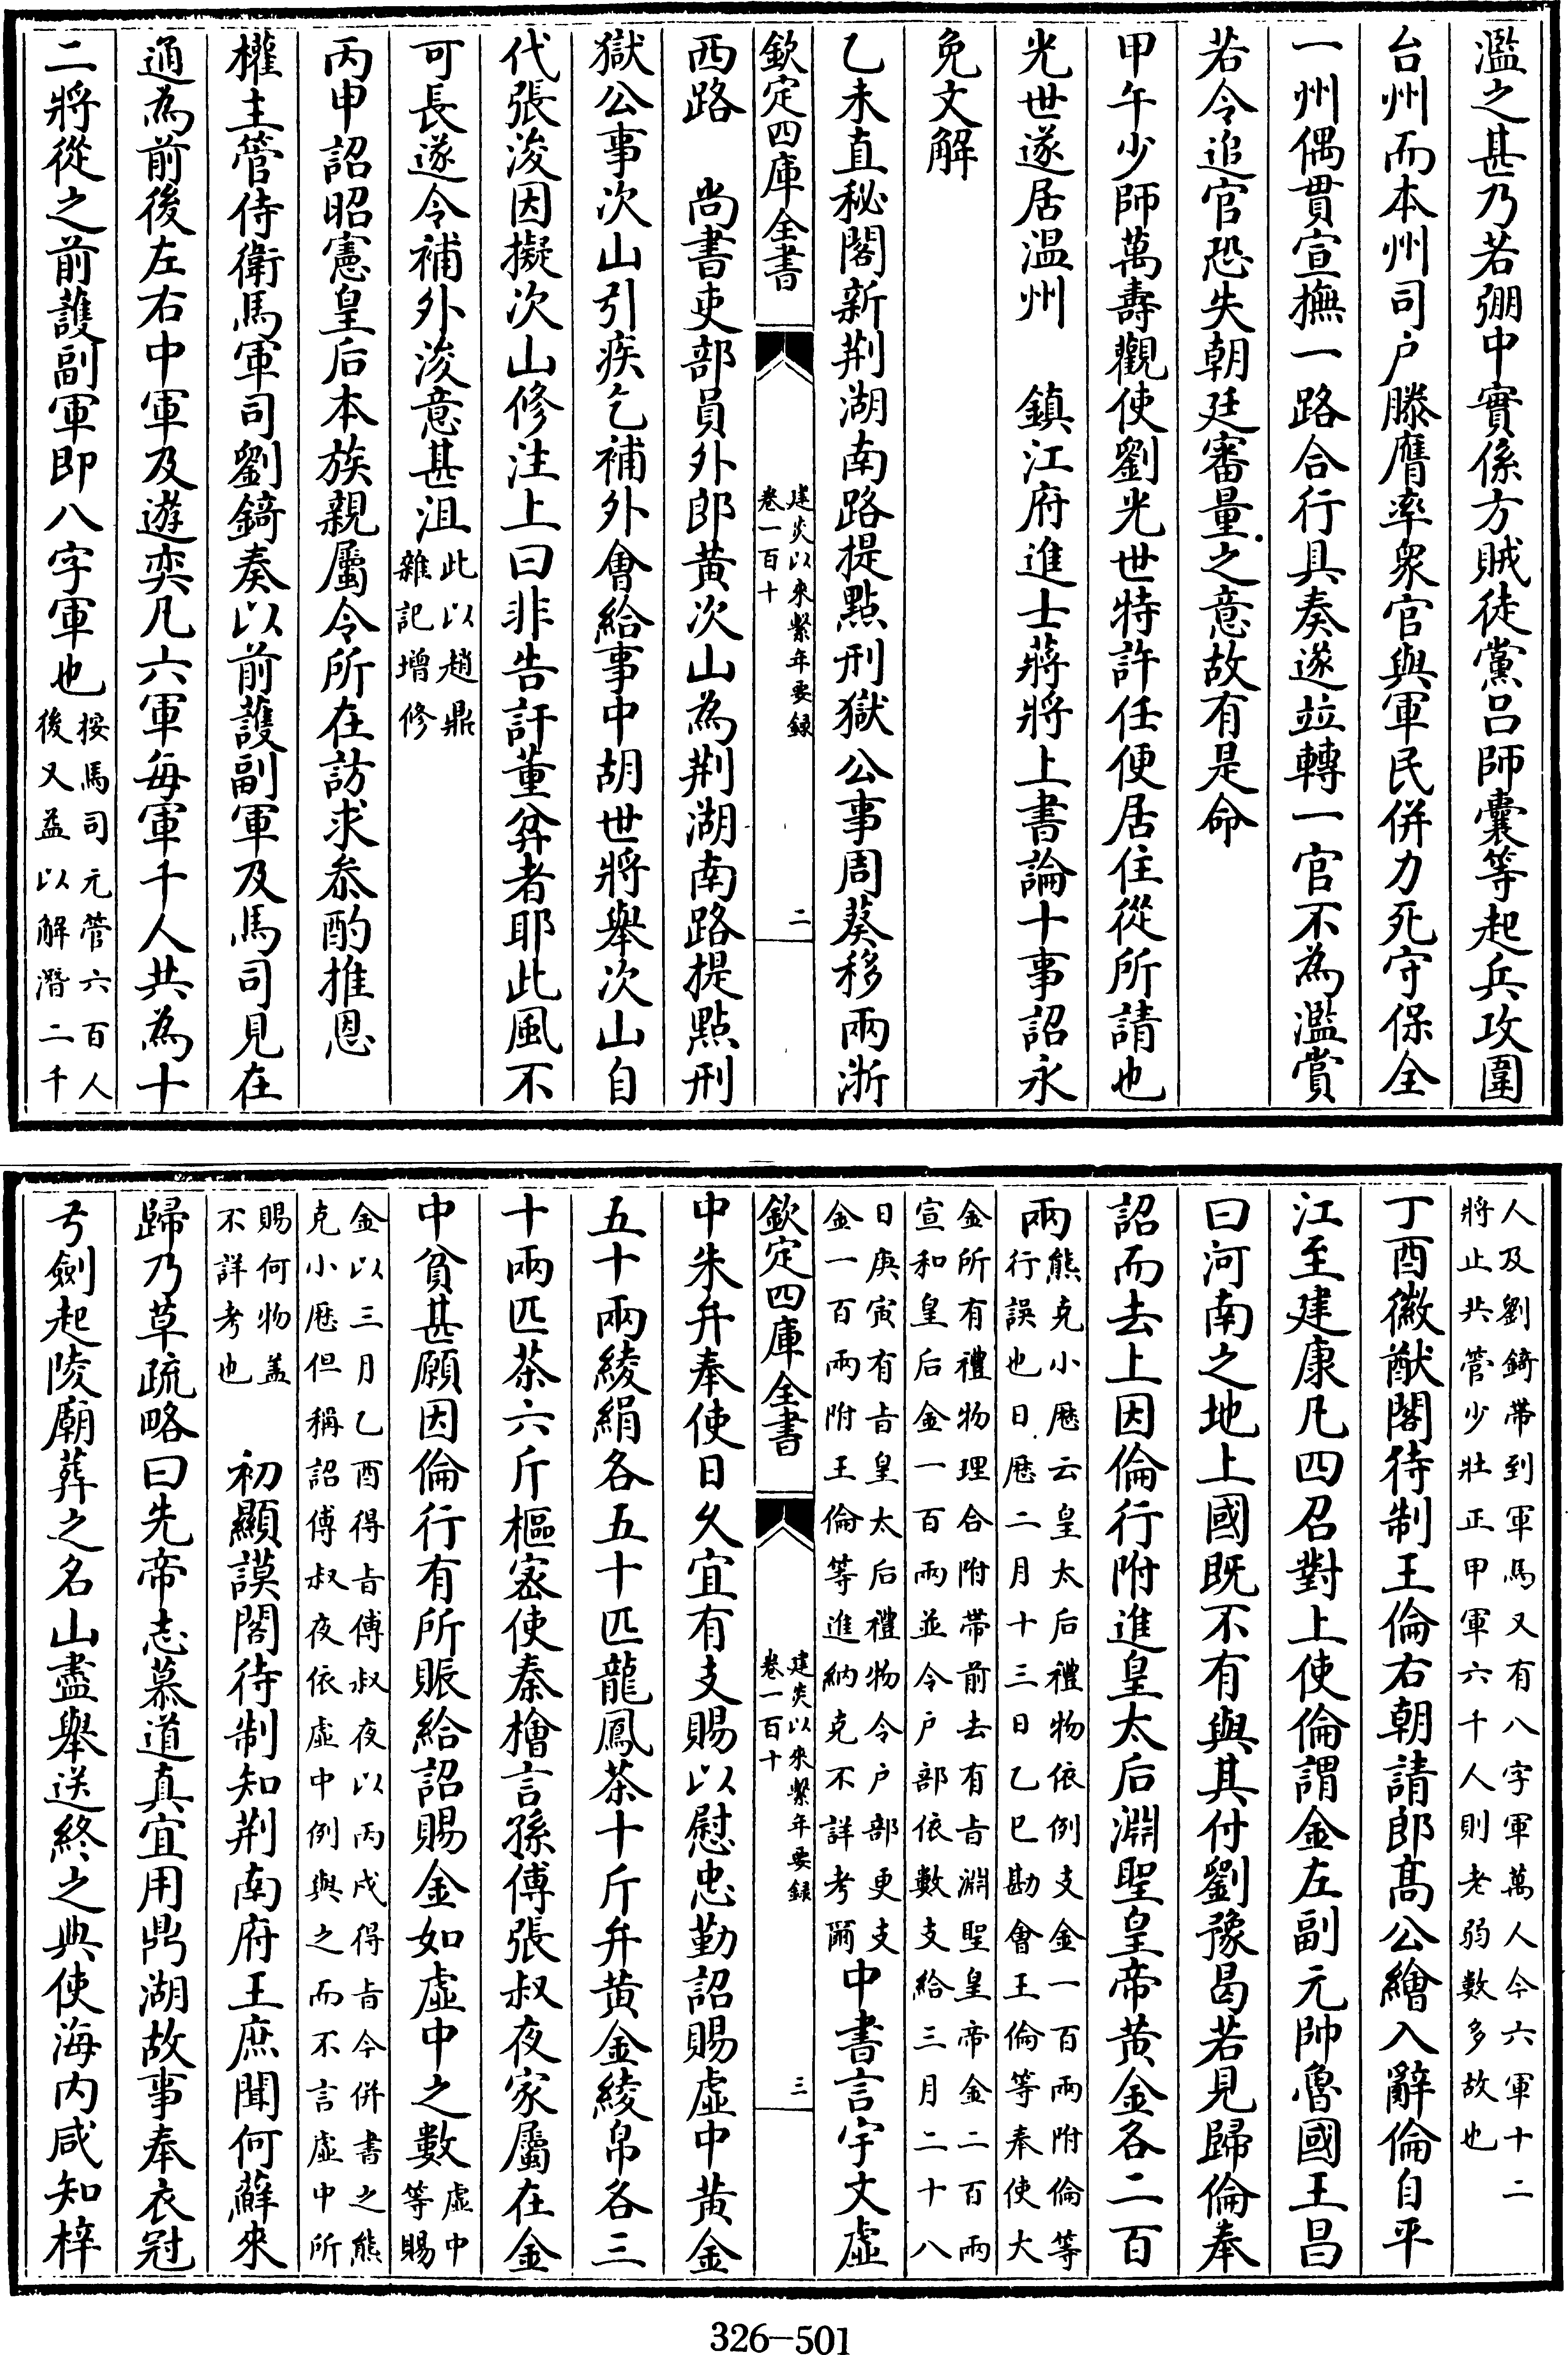 濫之甚乃若弸中實係方賊徒黨吕師囊等起兵攻圍
台州而本州司户滕膺率衆官與軍民併力死守保全
一州偶貫宣撫一路合行具奏遂竝轉一官不為濫賞
若令追官恐失朝廷審量之意故有是命
甲午少師萬壽觀使劉光世特許任便居住從所請也
光世遂居温州　鎮江府進士蔣將上書論十事詔永
免文解
乙未直秘閣新荆湖南路提點刑獄公事周葵移兩浙
欽定四庫全書
建炎以來繫年要録
卷一百十
二
西路　尚書吏部員外郎黄次山為荆湖南路提點刑
獄公事次山引疾乞補外會給事中胡世將舉次山自
代張浚因擬次山修注上曰非告訐董弅者耶此風不
可長遂令補外浚意甚沮
此以趙鼎
雜記增修
丙申詔昭憲皇后本族親屬令所在訪求叅酌推恩
權主管侍衛馬軍司劉錡奏以前護副軍及馬司見在
通為前後左右中軍及遊奕凡六軍每軍千人共為十
二將從之前護副軍即八字軍也
按馬司元管六百人
後又益以解潛二千
人及劉錡帶到軍馬又有八字軍萬人今六軍十二
將止共管少壯正甲軍六千人則老弱數多故也
丁酉徽猷閣待制王倫右朝請郎髙公繪入辭倫自平
江至建康凡四召對上使倫謂金左副元帥魯國王昌
曰河南之地上國既不有與其付劉豫曷若見歸倫奉
詔而去上因倫行附進皇太后淵聖皇帝黄金各二百
兩
熊克小厯云皇太后禮物依例支金一百兩附倫等
行誤也日厯二月十三日乙巳勘會王倫等奉使大
金所有禮物理合附帶前去有旨淵聖皇帝金二百兩
宣和皇后金一百兩並令户部依數支給三月二十八
日庚寅有旨皇太后禮物令户部更支
金一百兩附王倫等進納克不詳考爾
中書言宇文虚
欽定四庫全書
建炎以來繫年要録
卷一百十
三
中朱弁奉使日久宜有支賜以慰忠勤詔賜虚中黄金
五十兩綾絹各五十匹龍鳳茶十斤弁黄金綾帛各三
十兩匹茶六斤樞宻使秦檜言孫傅張叔夜家屬在金
中貧甚願因倫行有所賑給詔賜金如虚中之數
虚中
等賜
金以三月乙酉得旨傅叔夜以丙戌得旨今併書之熊
克小厯但稱詔傅叔夜依虚中例與之而不言虚中所
賜何物盖
不詳考也
初顯謨閣待制知荆南府王庶聞何蘚來
歸乃草疏略曰先帝志慕道真宜用鼎湖故事奉衣冠
弓劍起陵廟葬之名山盡舉送終之典使海内咸知梓
326-501